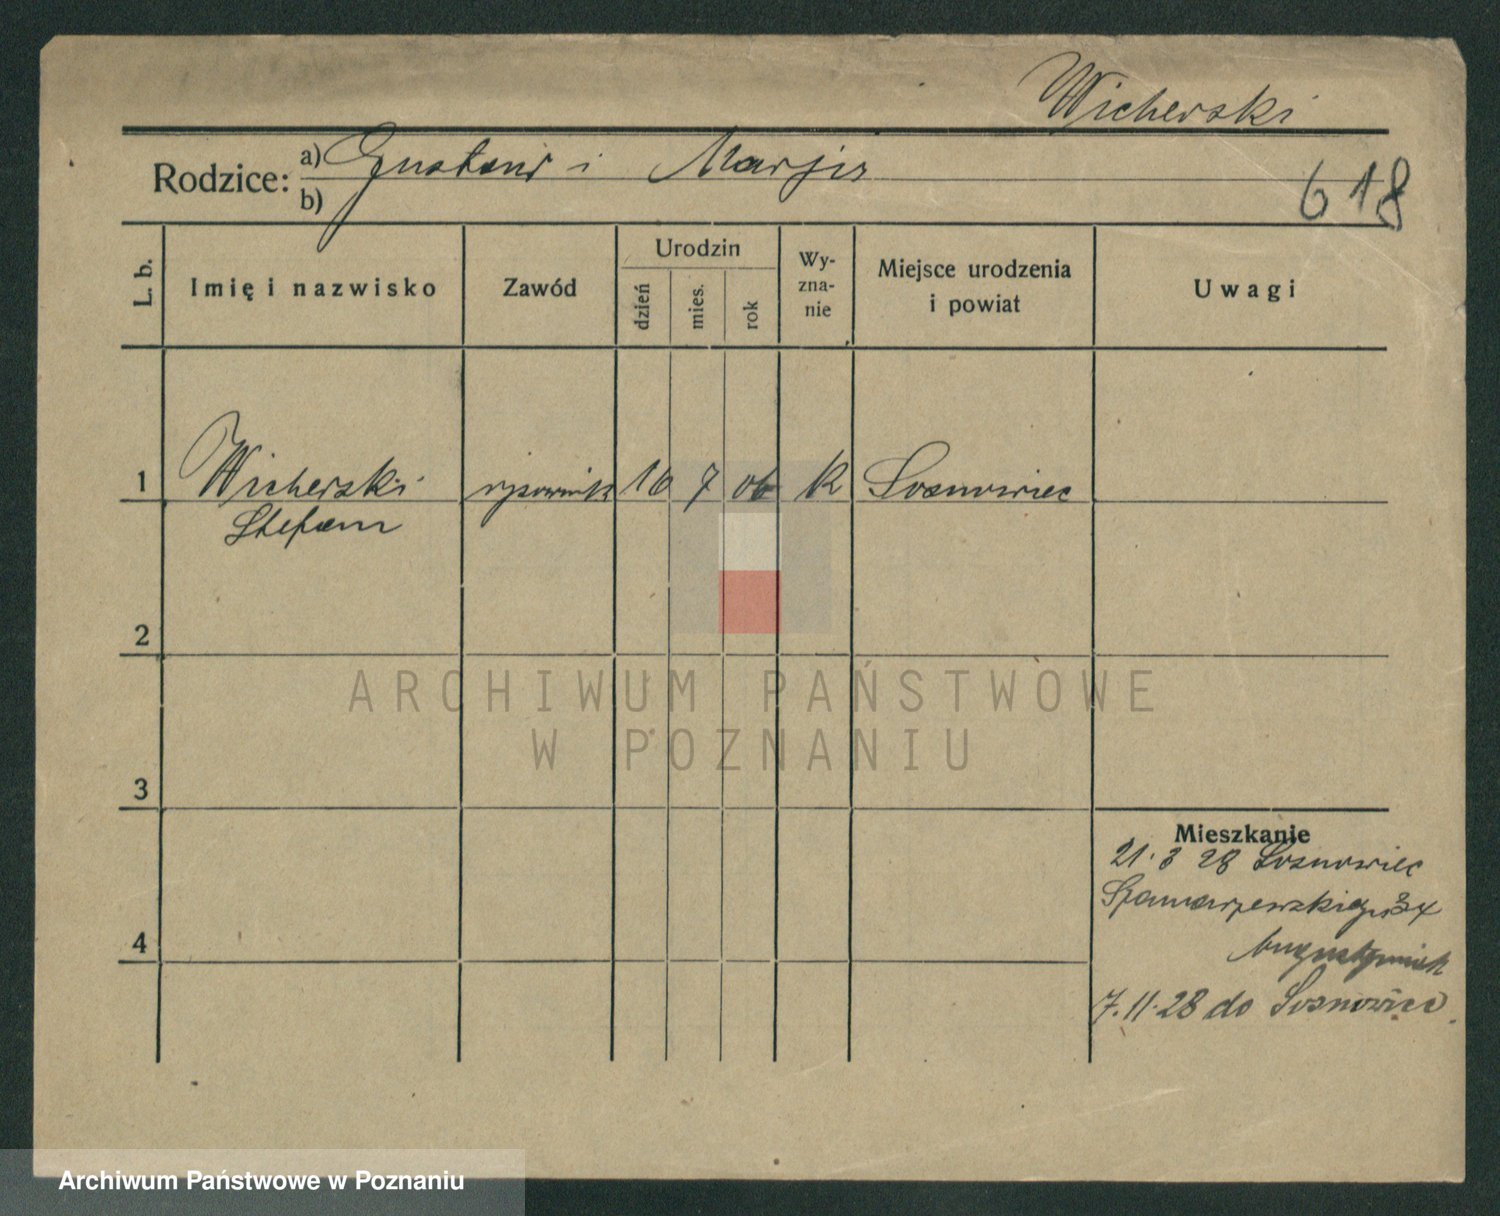 Wicherski
Rodzice: a) Gustaw i Marja
b)
618
L. b.
Imię i nazwisko
Zawód
Urodzin
dzień
mies.
rok
Wy-
zna-
nie
Miejsce urodzenia
i powiat
Uwagi
1 Wicherski rysownik 16 7 06 K Sosnowiec
Stefan
2
3
4
Mieszkanie
21.3 28 Sosnowiec
Szamarzewskiego 34
Augustyniak
7.11.28 do Sosnowiec
ARCHIWUM PAŃSTWOWE
W POZNANIU
Archiwum Państwowe w Poznaniu